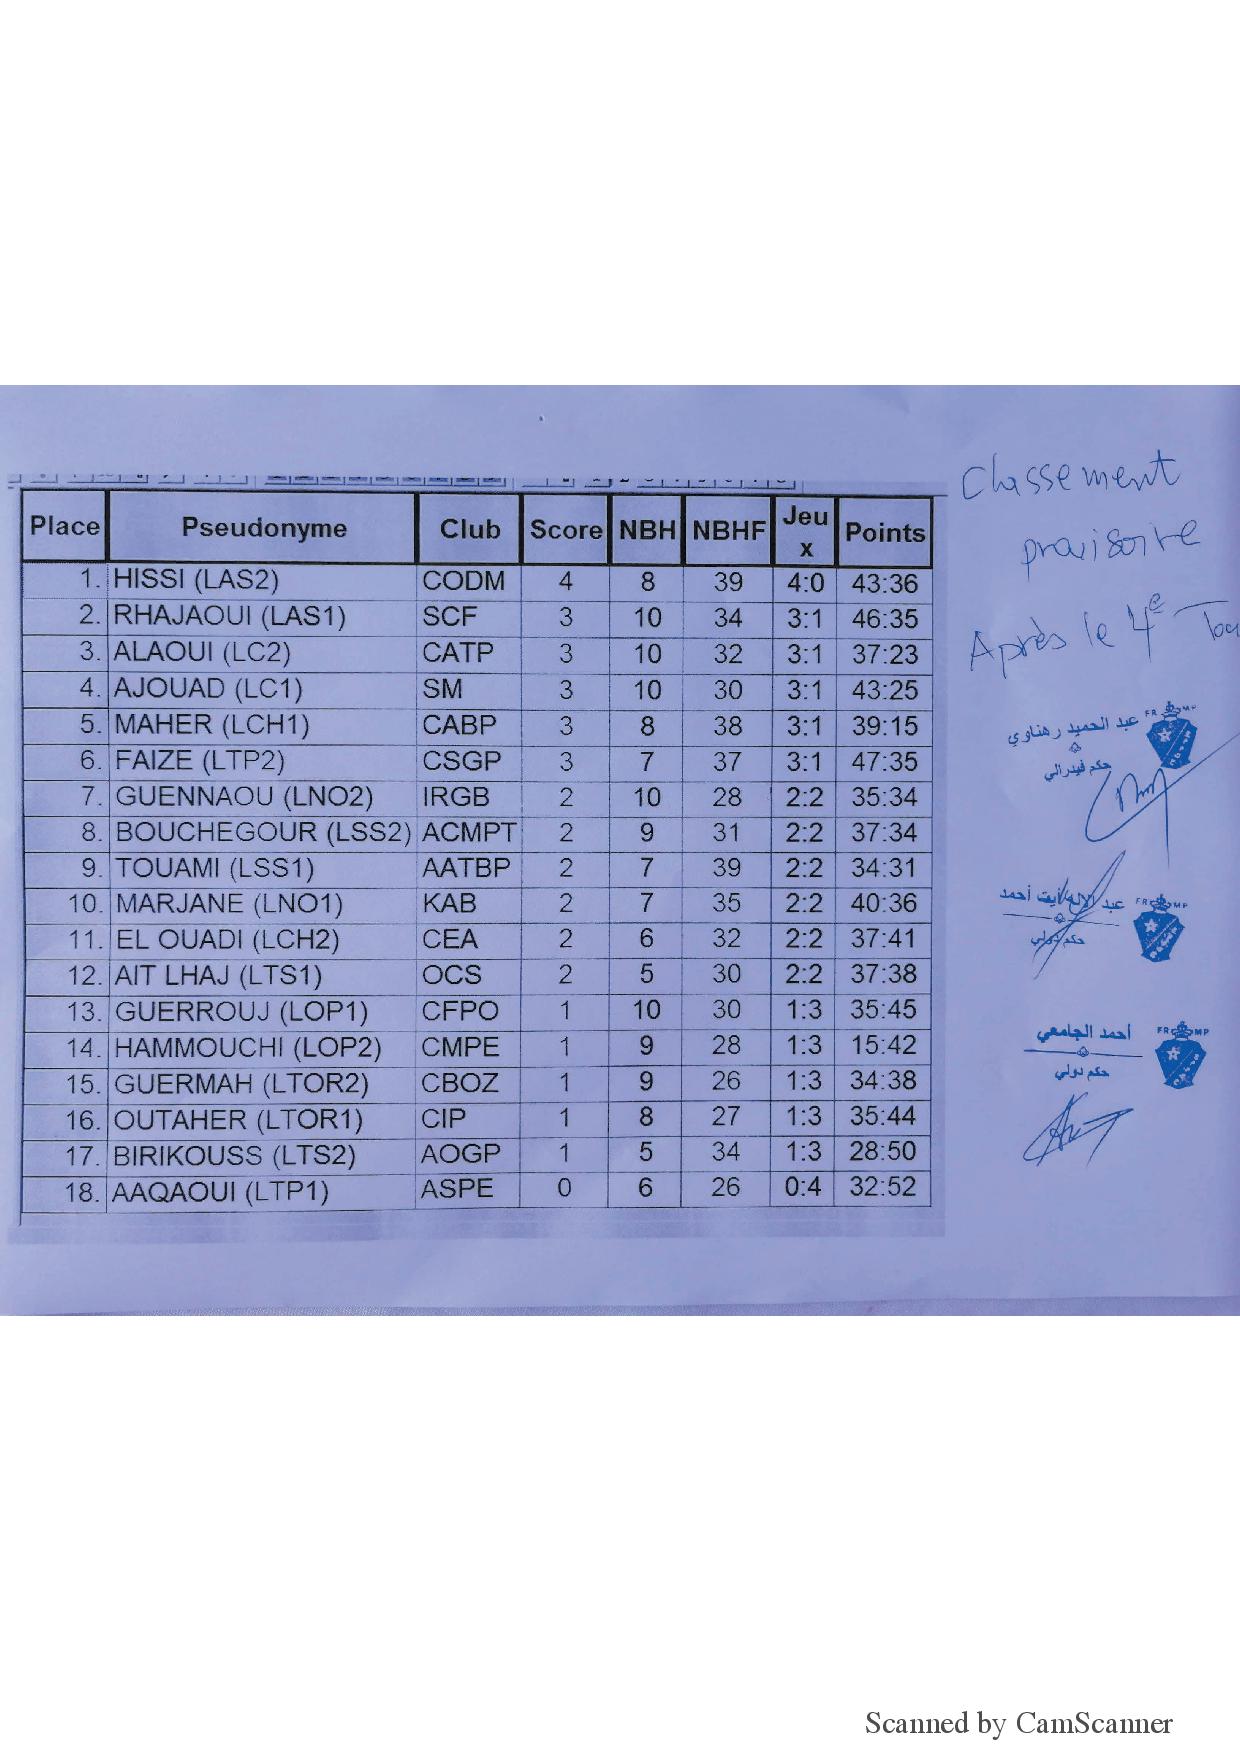 Classement
provisoire
Après le 4e Tou
Place Pseudonyme Club Score NBH NBHF Jeu x Points
1. HISSI (LAS2) CODM 4 8 39 4:0 43:36
2. RHAJAOUI (LAS1) SCF 3 10 34 3:1 46:35
3. ALAOUI (LC2) CATP 3 10 32 3:1 37:23
4. AJOUAD (LC1) SM 3 10 30 3:1 43:25
5. MAHER (LCH1) CABP 3 8 38 3:1 39:15
6. FAIZE (LTP2) CSGP 3 7 37 3:1 47:35
7. GUENNAOU (LNO2) IRGB 2 10 28 2:2 35:34
8. BOUCHEGOUR (LSS2) ACMPT 2 9 31 2:2 37:34
9. TOUAMI (LSS1) AATBP 2 7 39 2:2 34:31
10. MARJANE (LNO1) KAB 2 7 35 2:2 40:36
11. EL OUADI (LCH2) CEA 2 6 32 2:2 37:41
12. AIT LHAJ (LTS1) OCS 2 5 30 2:2 37:38
13. GUERROUJ (LOP1) CFPO 1 10 30 1:3 35:45
14. HAMMOUCHI (LOP2) CMPE 1 9 28 1:3 15:42
15. GUERMAH (LTOR2) CBOZ 1 9 26 1:3 34:38
16. OUTAHER (LTOR1) CIP 1 8 27 1:3 35:44
17. BIRIKOUSS (LTS2) AOGP 1 5 34 1:3 28:50
18. AAQAOUI (LTP1) ASPE 0 6 26 0:4 32:52
عبد الحميد رهناوي
FR MP
حكم فيدرالي
عبد الإله أيت أحمد
FR MP
حكم دولي
أحمد الجامعي
FR MP
حكم دولي
Scanned by CamScanner